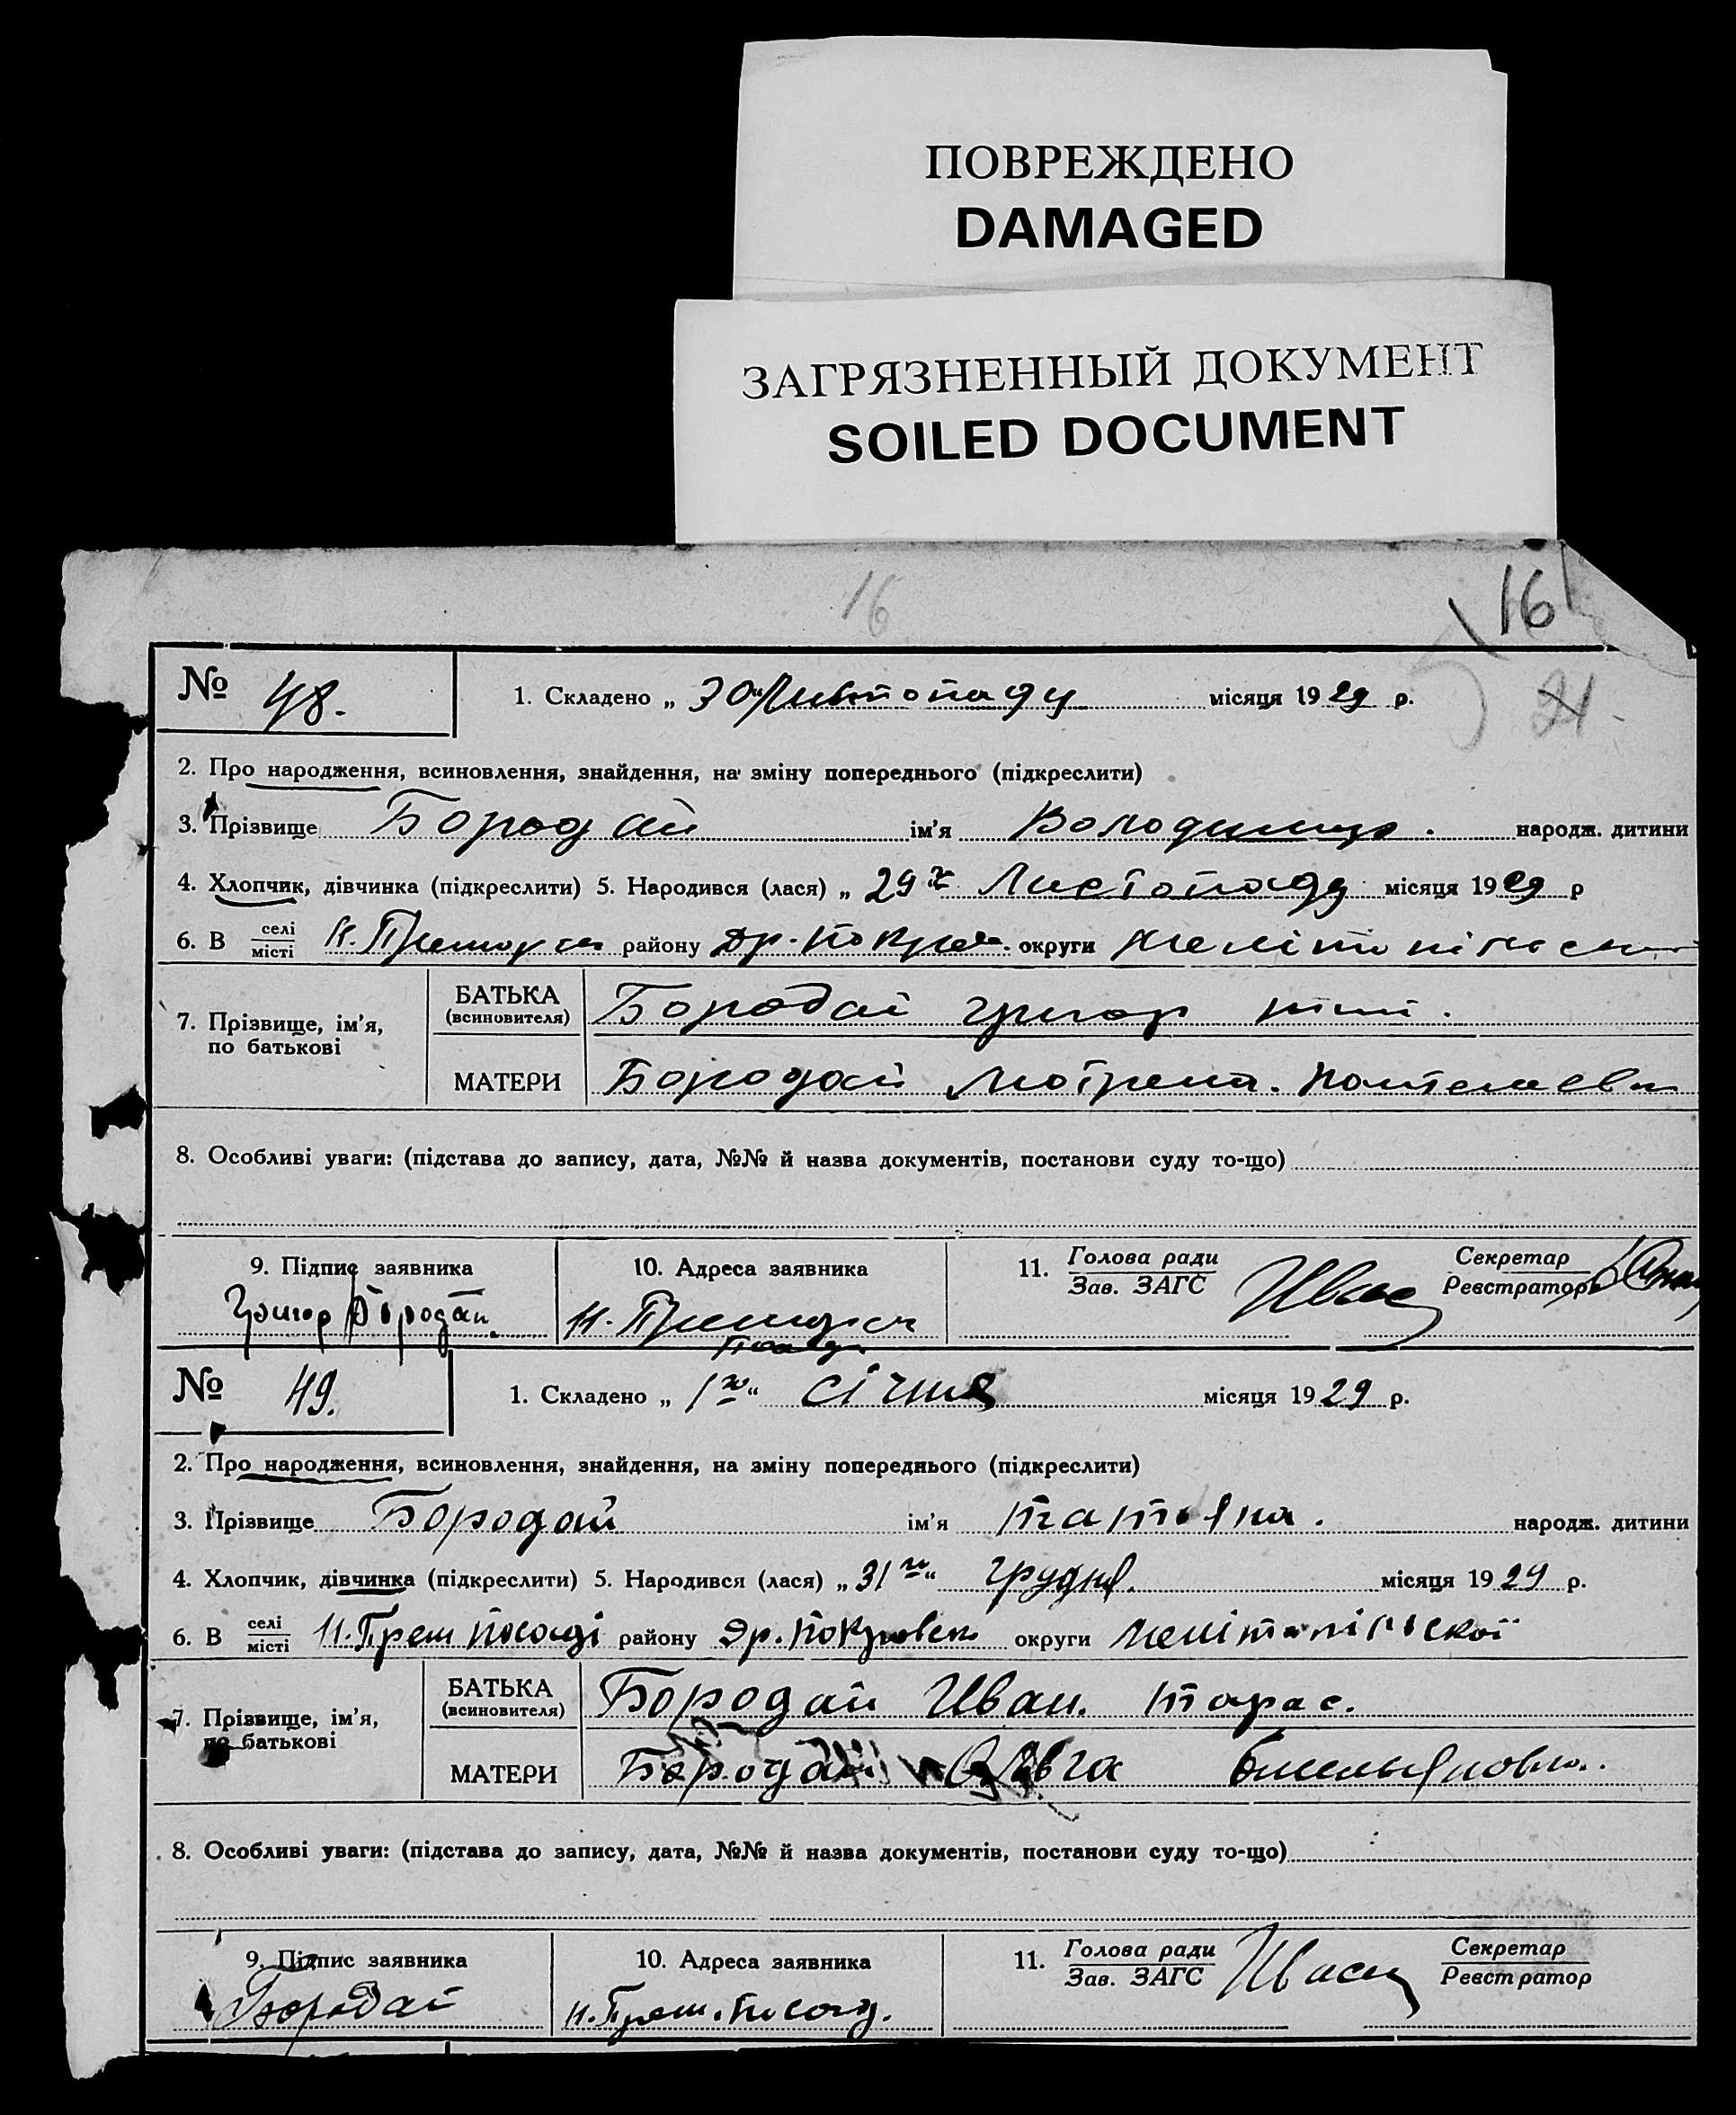 ПОВРЕЖДЕНО
DAMAGED
ЗАГРЯЗНЕННЫЙ ДОКУМЕНТ
SOILED DOCUMENT
16 16
№ 48. 1. Складено „ 30 " Листопаду місяця 1929 р. 21
2. Про народження, всиновлення, знайдення, на зміну попереднього (підкреслити)
3. Прізвище Бородай ім'я Володимир. народж. дитини
4. Хлопчик, дівчинка (підкреслити) 5. Народився (лася) „ 29го Листопаду місяця 1929 р
6. В селі/місті району округи
7. Прізвище, ім'я, по батькові
БАТЬКА (всиновителя) Бородай Григор
МАТЕРИ Бородай Мотрена.
8. Особливі уваги: (підстава до запису, дата, №№ й назва документів, постанови суду то-що)
9. Підпис заявника 10. Адреса заявника 11. Голова ради/Зав. ЗАГС Секретар/Реєстратор
Григор Бородай.
№ 49. 1. Складено „ 1го " січня місяця 1929 р.
2. Про народження, всиновлення, знайдення, на зміну попереднього (підкреслити)
3. Прізвище Бородай ім'я Татьяна. народж. дитини
4. Хлопчик, дівчинка (підкреслити) 5. Народився (лася) „ 31го " грудня. місяця 1929 р.
6. В селі/місті Н. Преш Посаді району Др. Покровск округи Мелітопільскої
7. Прізвище, ім'я, по батькові
БАТЬКА (всиновителя) Бородай Иван. Тарас.
МАТЕРИ Бородай Ольга Емельяновна.
8. Особливі уваги: (підстава до запису, дата, №№ й назва документів, постанови суду то-що)
9. Підпис заявника 10. Адреса заявника 11. Голова ради/Зав. ЗАГС Секретар/Реєстратор
Бородай Н. Преш. Посад.